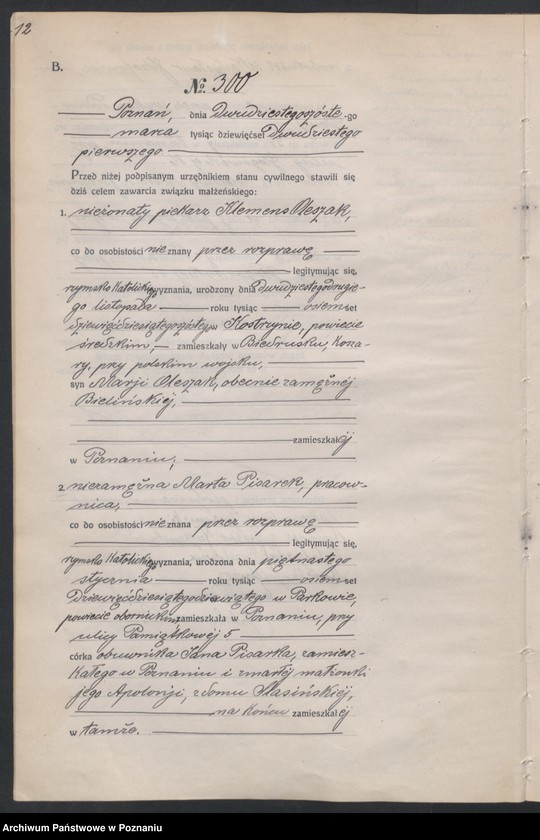 12
B.
№. 300
Poznań, dnia Dwudziestegoszóste-go
marca tysiąc dziewięćset Dwudziestego
pierwszego
Przed niżej podpisanym urzędnikiem stanu cywilnego stawili się
dziś celem zawarcia związku małżeńskiego:
1. nieżonaty piekarz Klemens Oleszak,
co do osobistości nieznany przez rozprawę
legitymując się,
rzymsko Katolickiego wyznania, urodzony dnia Dwudziestegodrugie-
go listopada roku tysiąc osiemset
dziewięćdziesiątegoszóstego w Kostrzynie, powiecie
średzkim, zamieszkały w Biedrusku, Kosza-
ry, przy polskim wojsku,
syn Marji Oleszak, obecnie zamężnej
Bielińskiej,
zamieszkałej
w Poznaniu;
2. niezamężna Marta Pisarek, pracow-
nica,
co do osobistości nieznana przez rozprawę
legitymując się,
rzymsko Katolickiego wyznania, urodzona dnia piętnastego
stycznia roku tysiąc osiemset
Dziewięćdziesiątegodziewiątego w Parkowie,
powiecie obornickim, zamieszkała w Poznaniu, przy
ulicy Pamiątkowej 5
córka obuwnika Jana Pisarka, zamiesz-
kałego w Poznaniu i zmarłej małżonki
jego Apolonji, z domu Stasińskiej,
na końcu zamieszkałej
w tamże.
Archiwum Państwowe w Poznaniu